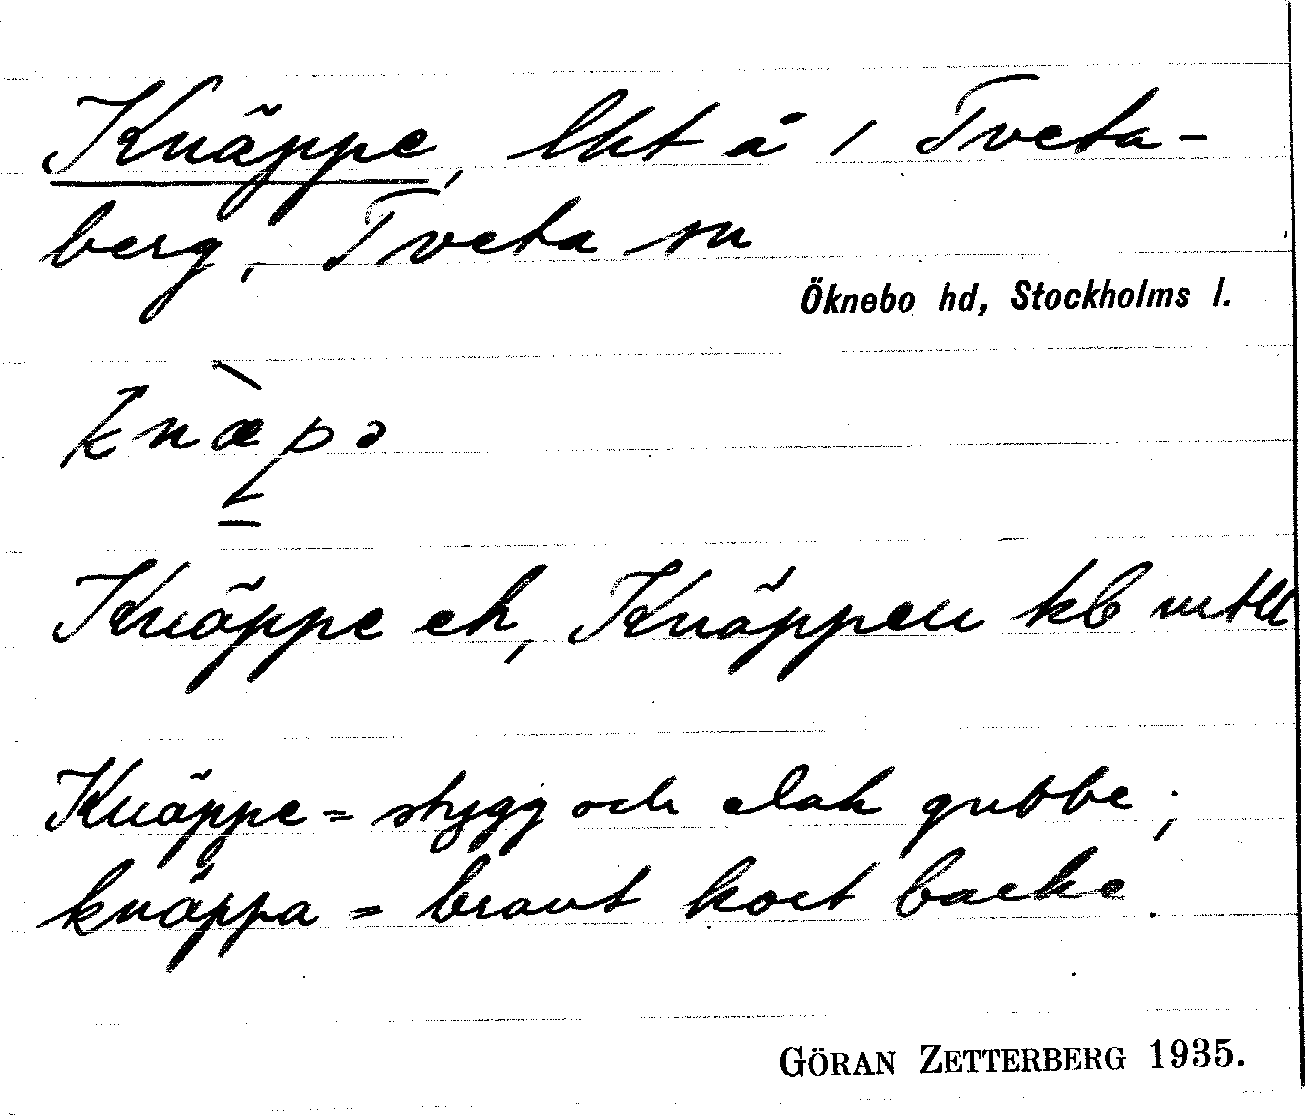 Knäppe, lht å 1 Tveta-
berg, Tveta sn
Öknebo hd, Stockholms l.
knæ̀pə
Knäppe ek, Knäppen kb
Knäppe = stygg och elak gubbe;
knäppa = brant kort backe.
GÖRAN ZETTERBERG 1935.